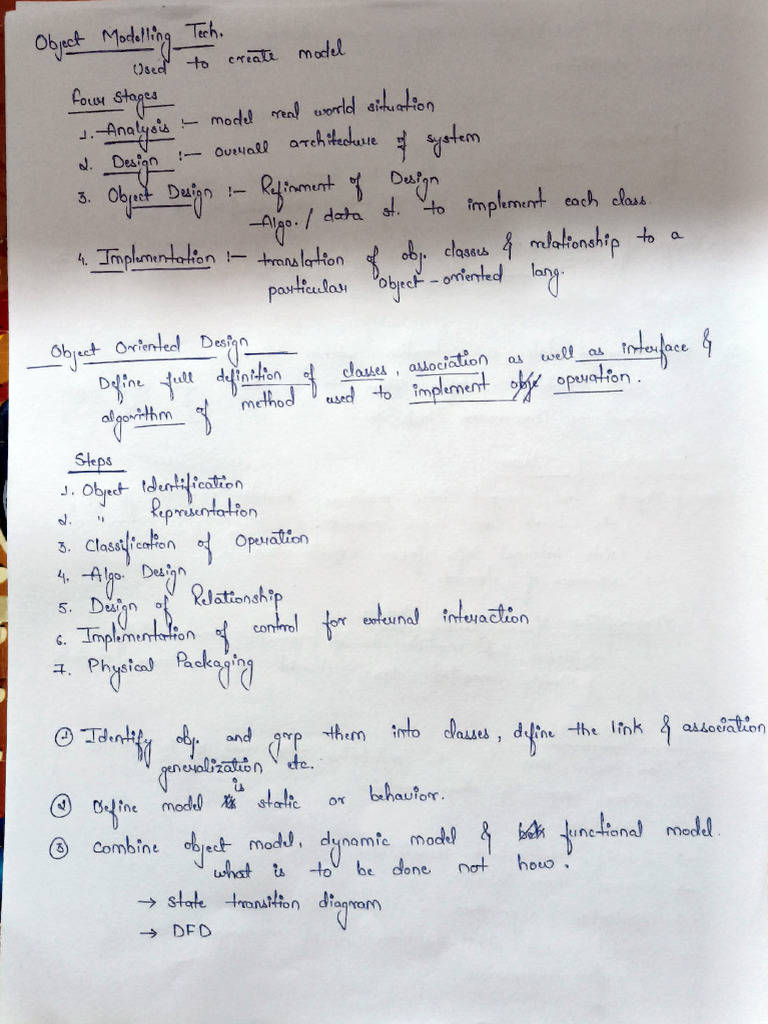 Object Modelling Tech.
Used to create model
Four Stages
1. Analysis :- model real world situation
2. Design :- overall architecture of system
3. Object Design :- Refinment of Design
Algo. / data st. to implement each class.
4. Implementation :- translation of obj. classes & relationship to a
particular Object-oriented lang.
Object Oriented Design
Define full definition of classes, association as well as interface &
algorithm of method used to implement operation.
Steps
1. Object Identification
2. " Representation
3. Classification of Operation
4. Algo. Design
5. Design of Relationship
6. Implementation of control for external interaction
7. Physical Packaging
① Identify obj. and grp them into classes, define the link & association
generalization etc.
② Define model is static or behavior.
③ Combine object model, dynamic model & functional model.
what is to be done not how.
→ State transition diagram
→ DFD